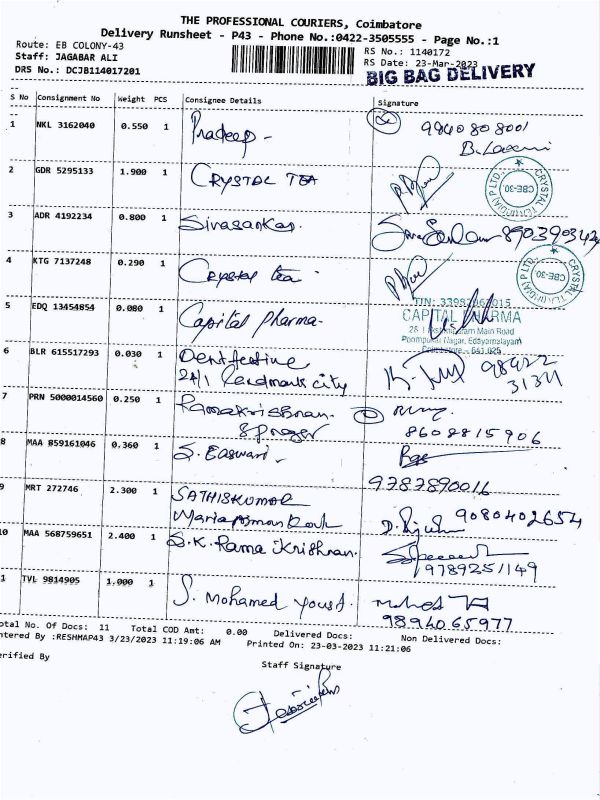 THE PROFESSIONAL COURIERS, Coimbatore
Delivery Runsheet - P43 - Phone No.:0422-3505555 - Page No.:1
Route: EB COLONY-43
Staff: JAGABAR ALI
DRS No.: DCJB114017201
RS No.: 1140172
RS Date: 23-Mar-2023
BIG BAG DELIVERY
S No Consignment No Weight PCS Consignee Details Signature
1 NKL 3162040 0.550 1 Pradeep - 9940808001
B. Laxmi
2 GDR 5295133 1.900 1 CRYSTAL TEA
CRYSTAL TEA (INDIA) P LTD. CBE-30
3 ADR 4192234 0.800 1 Sivasankar 8903903424
4 KTG 7137248 0.290 1 Crystal tea
CRYSTAL TEA (INDIA) P LTD. CBE-30
5 EDQ 13454854 0.080 1 Capital pharma-
CAPITAL PHARMA
Main Road
Nagar, Edayarpalayam
Coimbatore - 641 025
6 BLR 615517293 0.030 1
24/1 Landmark city
98422
31311
7 PRN 5000014560 0.250 1 Ramakrishnan.
8608815906
8 MAA 859161046 0.360 1 S. Easwari.
9787890016
9 MRT 272746 2.300 1 SATHISKUMAR
9080402654
10 MAA 568759651 2.400 1 S.K. Rama Krishnan.
9789251149
1 TVL 9814905 1.000 1 S. Mohamed yousf.
9894065977
otal No. Of Docs: 11 Total COD Amt: 0.00 Delivered Docs: Non Delivered Docs:
ntered By :RESHMAP43 3/23/2023 11:19:06 AM Printed On: 23-03-2023 11:21:06
erified By
Staff Signature